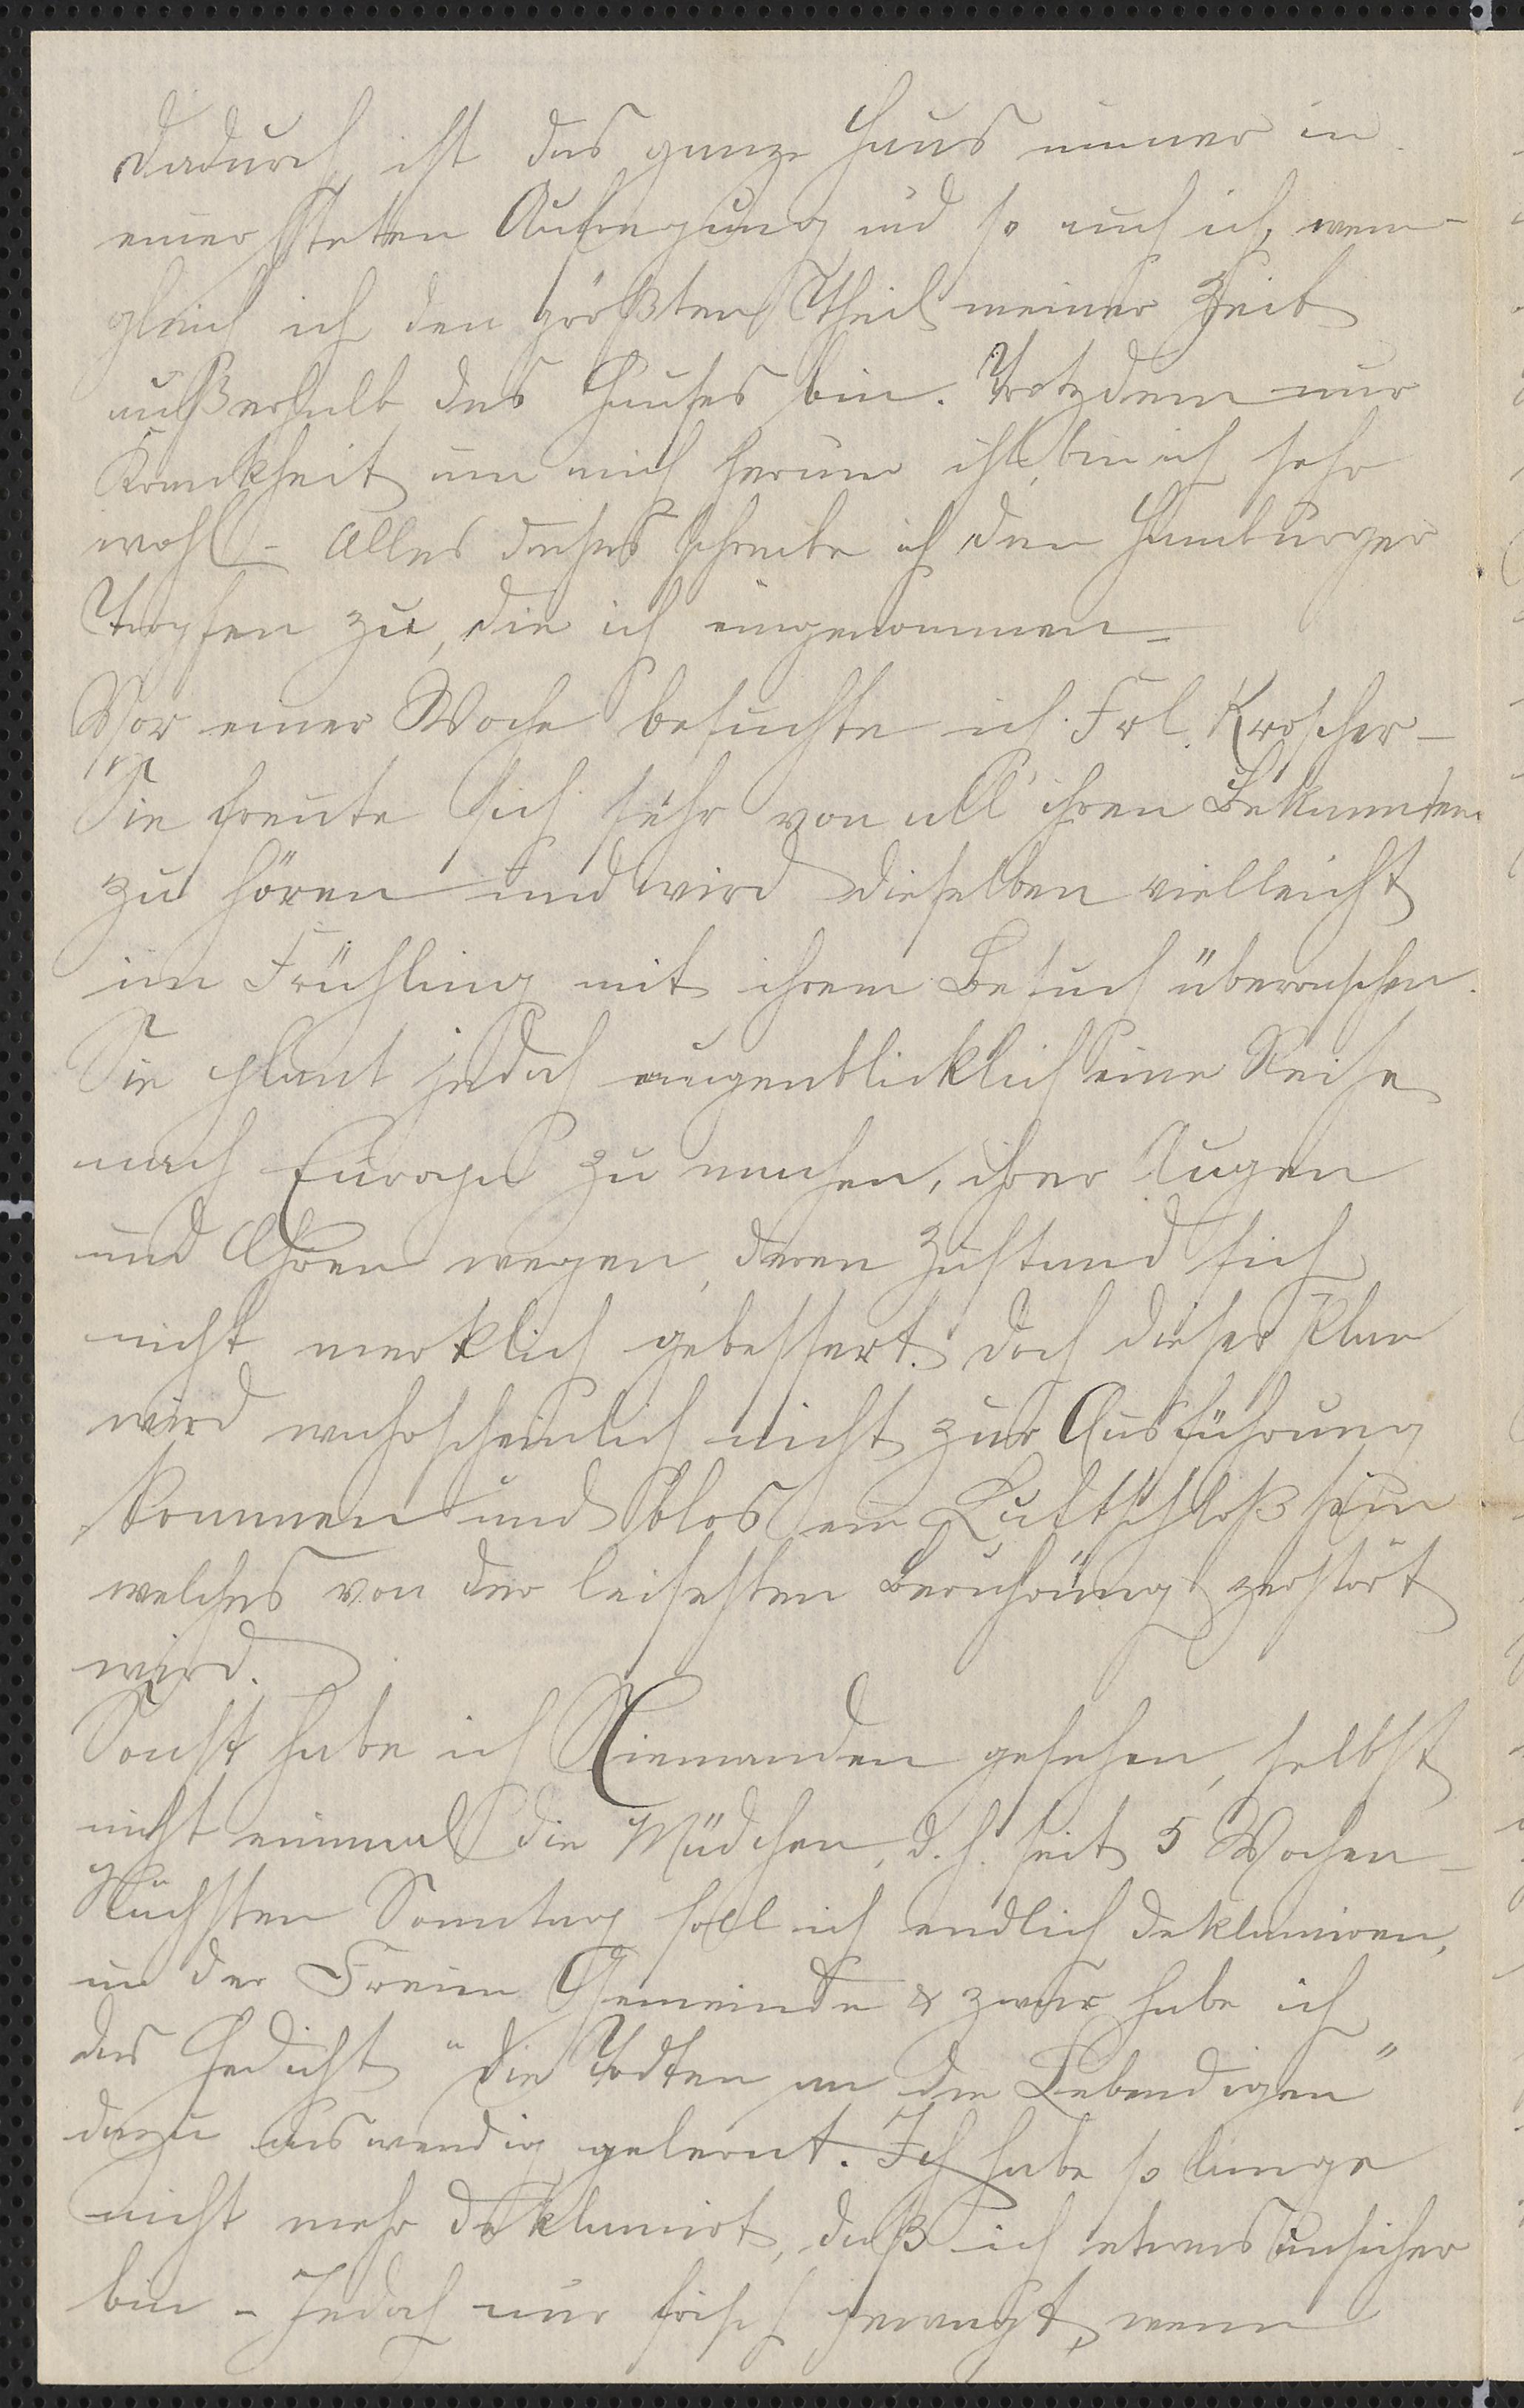 Dadurch ist das ganze Haus immer in
einer steten Aufregung und so auch ich, wenn-
gleich ich den größten Theil meiner Zeit
außerhalb des Hauses bin. Trotzdem nur
Krankheit um mich herum ist, bin ich sehr
wohl – Alles dieses schreibe ich den Hamburger
Tropfen zu, die ich eingenommen –
Vor einer Woche besuchte ich Frl. Kroscher –
Sie freute sich sehr von all' ihren Bekannten
zu hören und wird dieselben vielleicht
im Frühling mit ihrem Besuch überraschen.
Sie plant jedoch augenblicklich eine Reise
nach Europa zu machen, ihrer Augen
und Ohren wegen, deren Zustand sich
nicht merklich gebessert. Doch dieser Plan
wird wahrscheinlich nicht zur Ausführung
kommen und blos ein Luftschloß sein
welches von der leisesten Berührung zerstört
wird.
Sonst habe ich Niemanden gesehen, selbst
nicht einmal die Mädchen, d. h. seit 5 Wochen –
Nächsten Sonntag soll ich endlich deklamiren,
in der Freien Gemeinde & zwar habe ich
das Gedicht "Die Todten an die Lebendigen"
dazu auswendig gelernt. Ich habe so lange
nicht mehr deklamirt, daß ich etwas unsicher
bin – Jedoch nur frisch gewagt, wenn